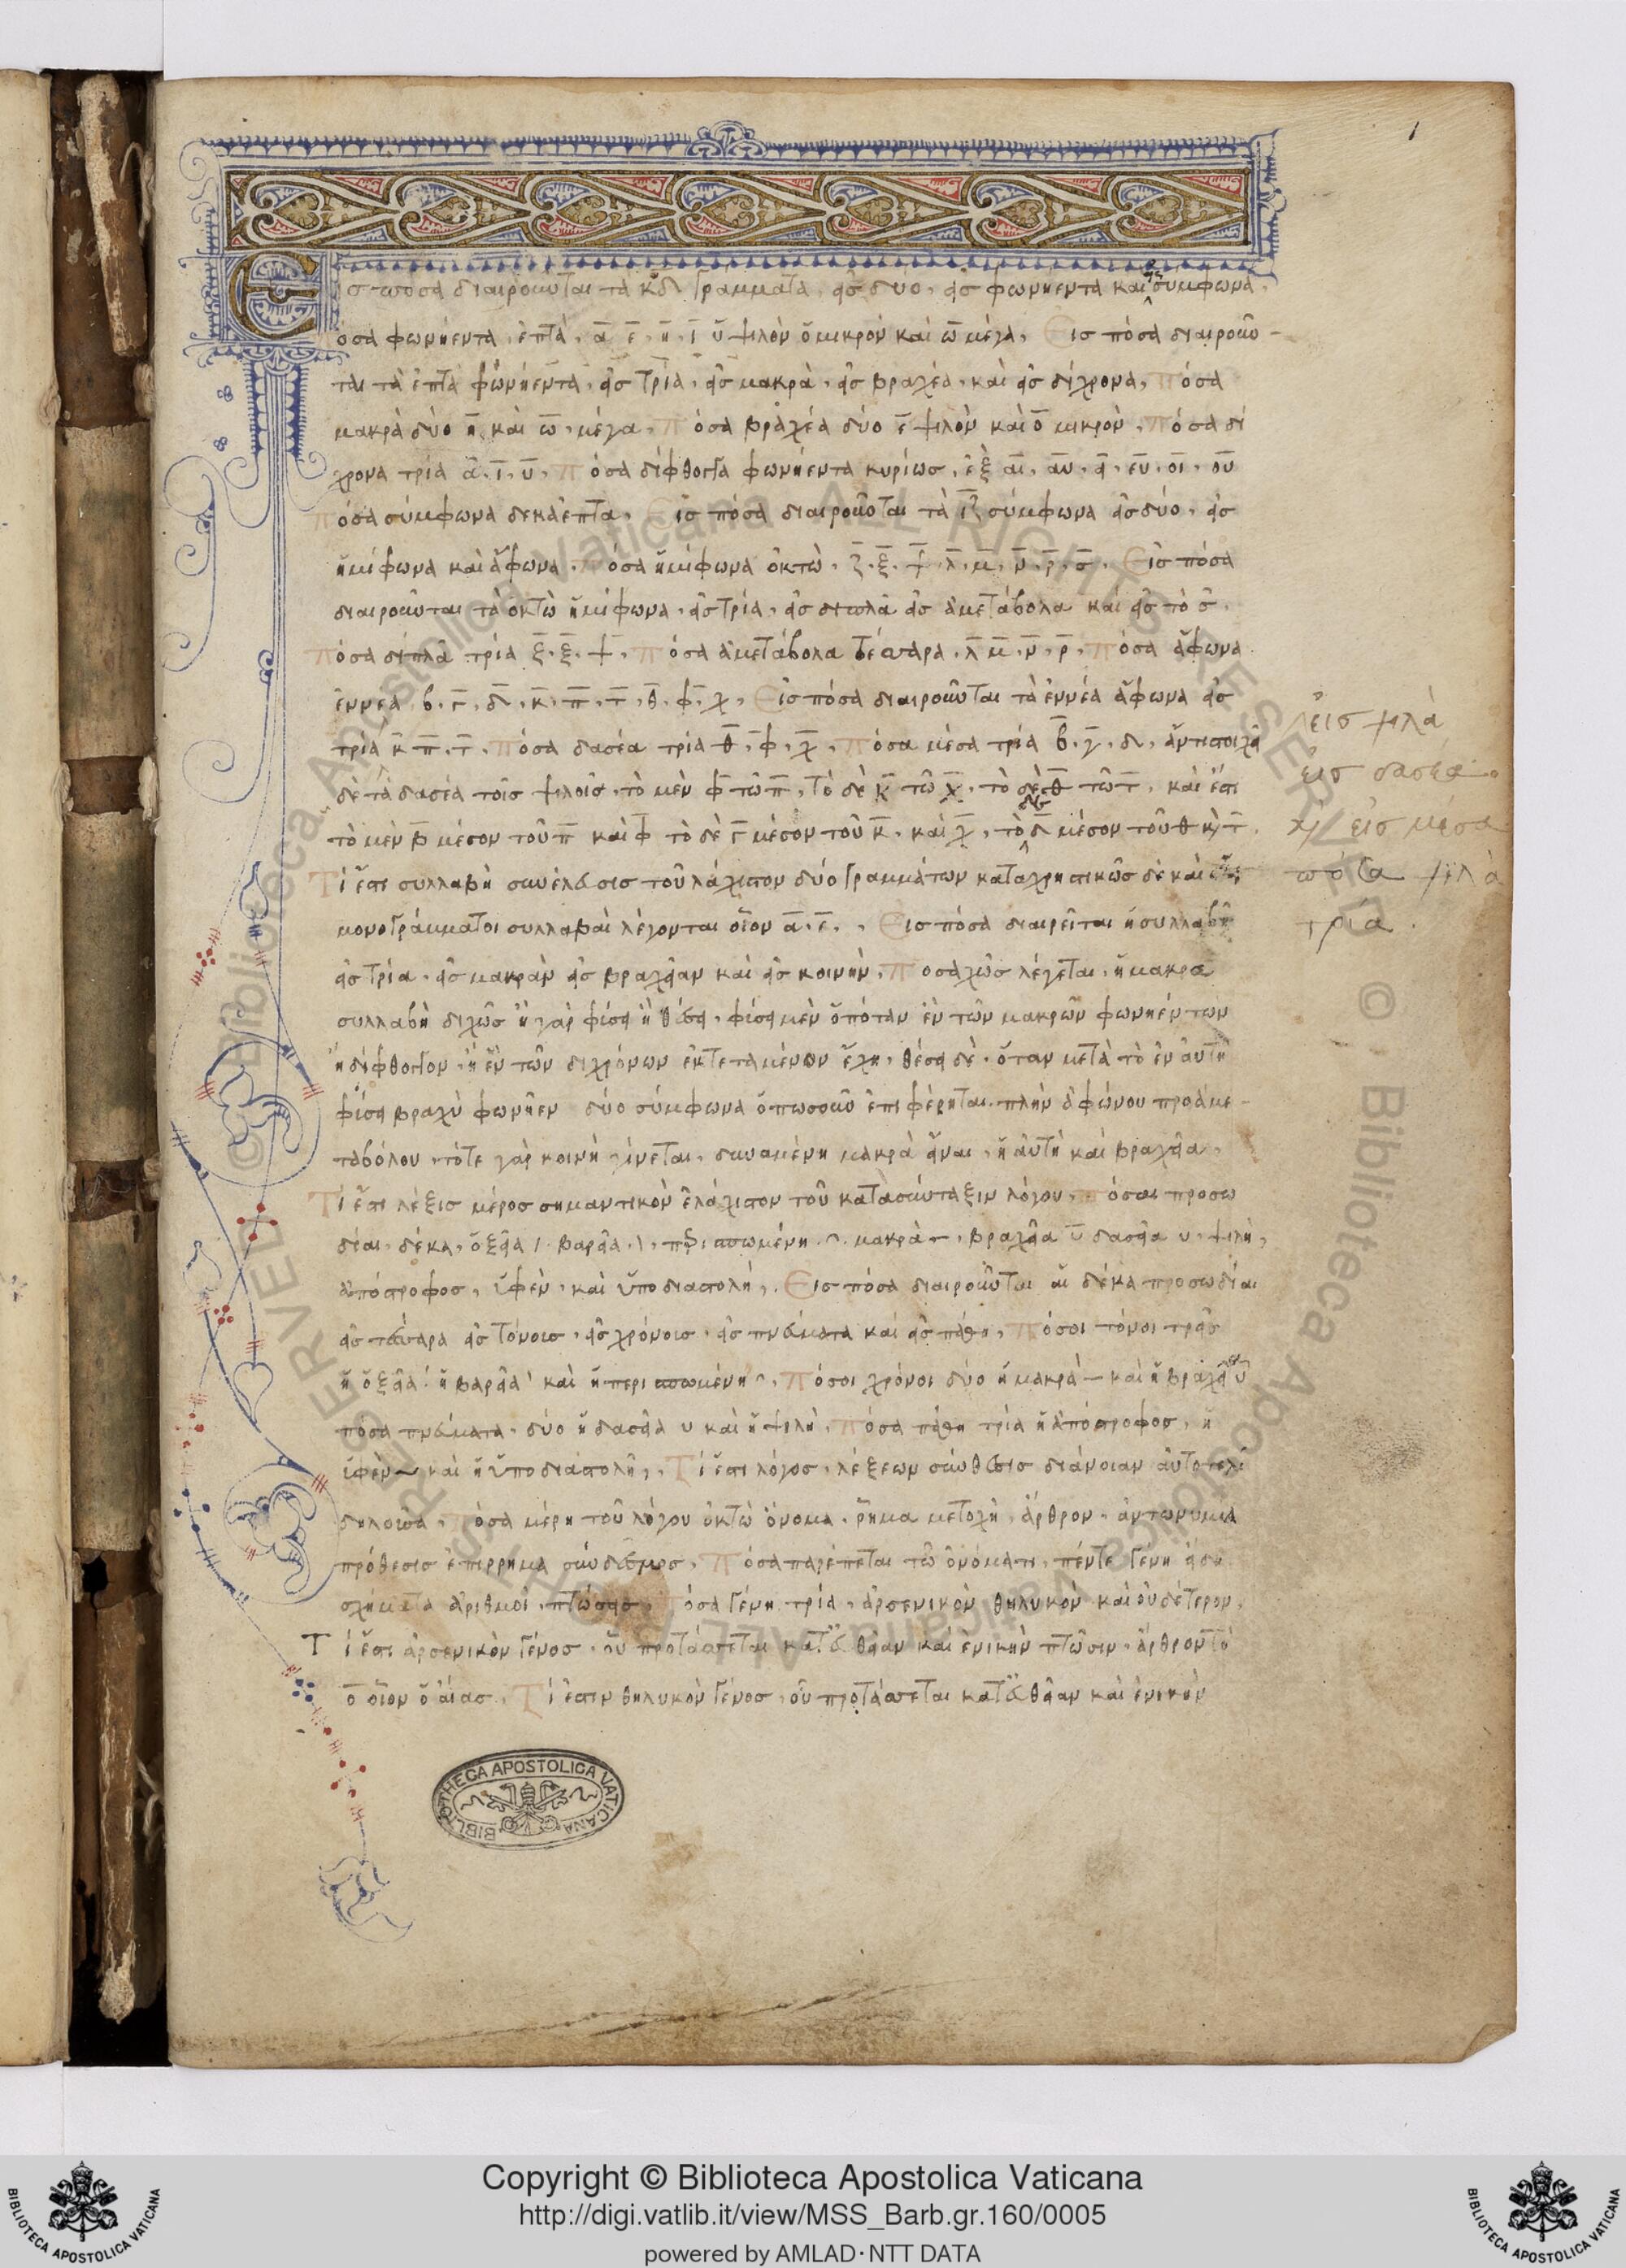 1
Εἰσ πόσα διαιροῦνται τὰ κδ γράμματα, εἰσ δύο, εἰσ φωνήεντα καὶ εἰσ σύμφωνα,
όσα φωνήεντα, ἑπτὰ, α ε η ι ὖ ψιλὸν ὂ μικρὸν καὶ ω μέγα, Εἰσ πόσα διαιροῦν-
ται τὰ ἑπτὰ φωνήεντα, εἰσ τρία, εἰσ μακρὰ, εἰσ βραχέα, καὶ εἰσ δίχρονα, Πόσα
μακρὰ δύο η καὶ ω μέγα, Πόσα βραχέα δύο ε ψιλὸν καὶ ο μικρὸν, Πόσα δί
χρονα τρία α. ι. υ. Πόσα δίφθογγα φωνήεντα κυρίωσ, ἓξ αι, αυ, ει, ευ, οι, ου
Πόσα σύμφωνα δεκαεπτα, Εἰσ πόσα διαιροῦνται τὰ ιζ σύμφωνα εἰσ δύο, εἰσ
ἡμίφωνα καὶ ἄφωνα. Πόσα ἡμίφωνα ὀκτὼ, ζ. ξ. ψ. λ. μ. ν. ρ. σ. Εἰσ πόσα
διαιροῦνται τὰ ὀκτὼ ἡμίφωνα, εἰσ τρία, εἰσ διπλᾶ εἰσ ἀμετάβολα καὶ εἰσ τὸ σ.
Πόσα διπλᾶ τρία ξ. ξ. ψ. Πόσα ἀμετάβολα τέσσαρα. λ μ. ν. ρ. Πόσα ἄφωνα
ἐννέα β. γ. δ. κ. π. τ. θ. φ. χ. Εἰσ πόσα διαιροῦνται τὰ ἐννέα ἄφωνα εἰσ
τρία κ π. τ. Πόσα δασέα τρία θ. φ. χ. Πόσα μέσα τρία β. γ. δ, ἀντιστοιχεῖ
δὲ τὰ δασέα τοῖσ ψιλοῖσ, τὸ μὲν φ τῶ π, τὸ δὲ κ τῶ χ, τὸ δὲ θ τῶ τ, καὶ ἔστι
τὸ μὲν β μέσον τοῦ π καὶ φ τὸ δὲ γ μέσον τοῦ κ. καὶ χ, τὸ δὲ δ μέσον τοῦ θ κ τ.
Τί ἔστι συλλαβὴ συνέλευσισ τοῦλάχιστον δύο γραμμάτων καταχρηστικῶσ δὲ καὶ αἱ
μονογράμματοι συλλαβαὶ λέγονται οἷον α. ε. , Εἰσ πόσα διαιρεῖται ἡ συλλαβὴ
εἰσ τρία. εἰσ μακρὰν εἰσ βραχεῖαν καὶ εἰσ κοινὴν, Ποσαχῶσ λέγεται, ἡ μακρα
συλλαβὴ διχῶσ ἢ γὰρ φύσει ἢ θέσει, φύσει μὲν ὁπόταν ἓν τῶν μακρῶν φωνηέντων
ἢ δίφθογγον. ἢ ἓν τῶν διχρόνων ἐκτεταμένον ἔχη, θέσει δὲ. ὅταν μετὰ τὸ ἐν αὐτῆ
φύσει βραχὺ φωνῆεν δύο σύμφωνα ὁπωσοῦν ἐπιφέρηται. πλὴν ἀφώνου πρὸ ἀμε-
ταβόλου, τότε γὰρ κοινὴ γίνεται, δυναμένη μακρὰ εἶναι, ἡ αὐτὴ καὶ βραχεῖα,
Τί ἔστι λέξισ μέροσ σημαντικὸν ἐλάχιστον τοῦ κατὰ σύνταξιν λόγου, Πόσαι προσω
δίαι, δέκα, ὀξεῖα /. βαρεῖα. \, περισπωμένη. ῀. μακρὰ –, βραχεῖα υ δασεῖα υ, ψιλὴ,
ἀπόστροφοσ, ὑφὲν, καὶ ὑποδιαστολὴ, . Εἰσ πόσα διαιροῦνται αἱ δέκα προσωδίαι
εἰσ τέσσαρα εἰσ τόνουσ, εἰσ χρόνουσ, εἰσ πνεύματα καὶ εἰσ πάθη, Πόσοι τόνοι τρεῖσ
ἡ ὀξεῖα ΄ ἡ βαρεῖα ` καὶ ἡ περισπωμένη ῀, Πόσοι χρόνοι δύο ἡ μακρὰ – καὶ ἡ βραχεῖα υ
πόσα πνεύματα, δύο ἡ δασεῖα υ καὶ ἡ ψιλὴ, Πόσα πάθη τρία ἡ ἀπόστροφοσ, ἡ
ὑφὲν καὶ ἡ ὑποδιαστολὴ, , Τί ἔστι λόγοσ, λέξεων σύνθεσισ διάνοιαν αὐτοτελῆ
δηλοῦσα, Πόσα μέρη τοῦ λόγου ὀκτὼ ὄνομα, ῥῆμα μετοχὴ, ἄρθρον, ἀντωνυμία
πρόθεσισ ἐπίρρημα σύνδεσμοσ, Πόσα παρέπεται τῶ ὀνόματι, πέντε γένη εἴδη
σχήματα ἀριθμοὶ, πτώσεισ, όσα γένη τρία, ἀρσενικὸν θηλυκὸν καὶ οὐδέτερον,
Τί ἔστι ἀρσενικὸν γένοσ, οὗ προτάσσεται κατ εὐθεῖαν καὶ ἑνικὴν πτῶσιν, ἄρθρον τὸ
ο οἷον ὁ αἴασ, Τί ἔστιν θηλυκὸν γένοσ, οὗ προτάσσεται κατ εὐθεῖαν καὶ ἑνικὴν
εἰσ ψιλὰ
εἰσ δασέα.
κ εἰσ μέσα
πόσα ψιλὰ
τρία.
BIBLIOTHECA APOSTOLICA VATICANA
Copyright © Biblioteca Apostolica Vaticana
http://digi.vatlib.it/view/MSS_Barb.gr.160/0005
powered by AMLAD·NTT DATA
BIBLIOTECA APOSTOLICA VATICANA
BIBLIOTECA APOSTOLICA VATICANA